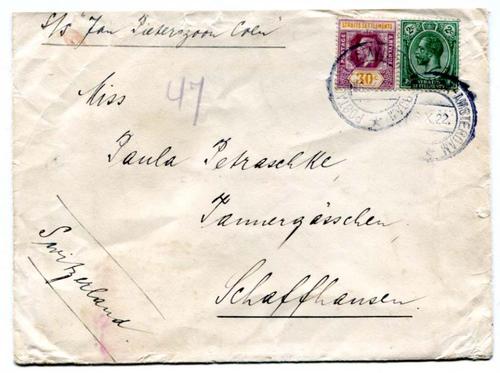 S/S Jan Pieterszoon Coen
STRAITS SETTLEMENTS
30c
2c
STRAITS
SETTLEMENTS
AMSTERDAM
X.22.
47
Miss
Paula Petraschke,
Tannergässchen
Schaffhausen.
Switzerland